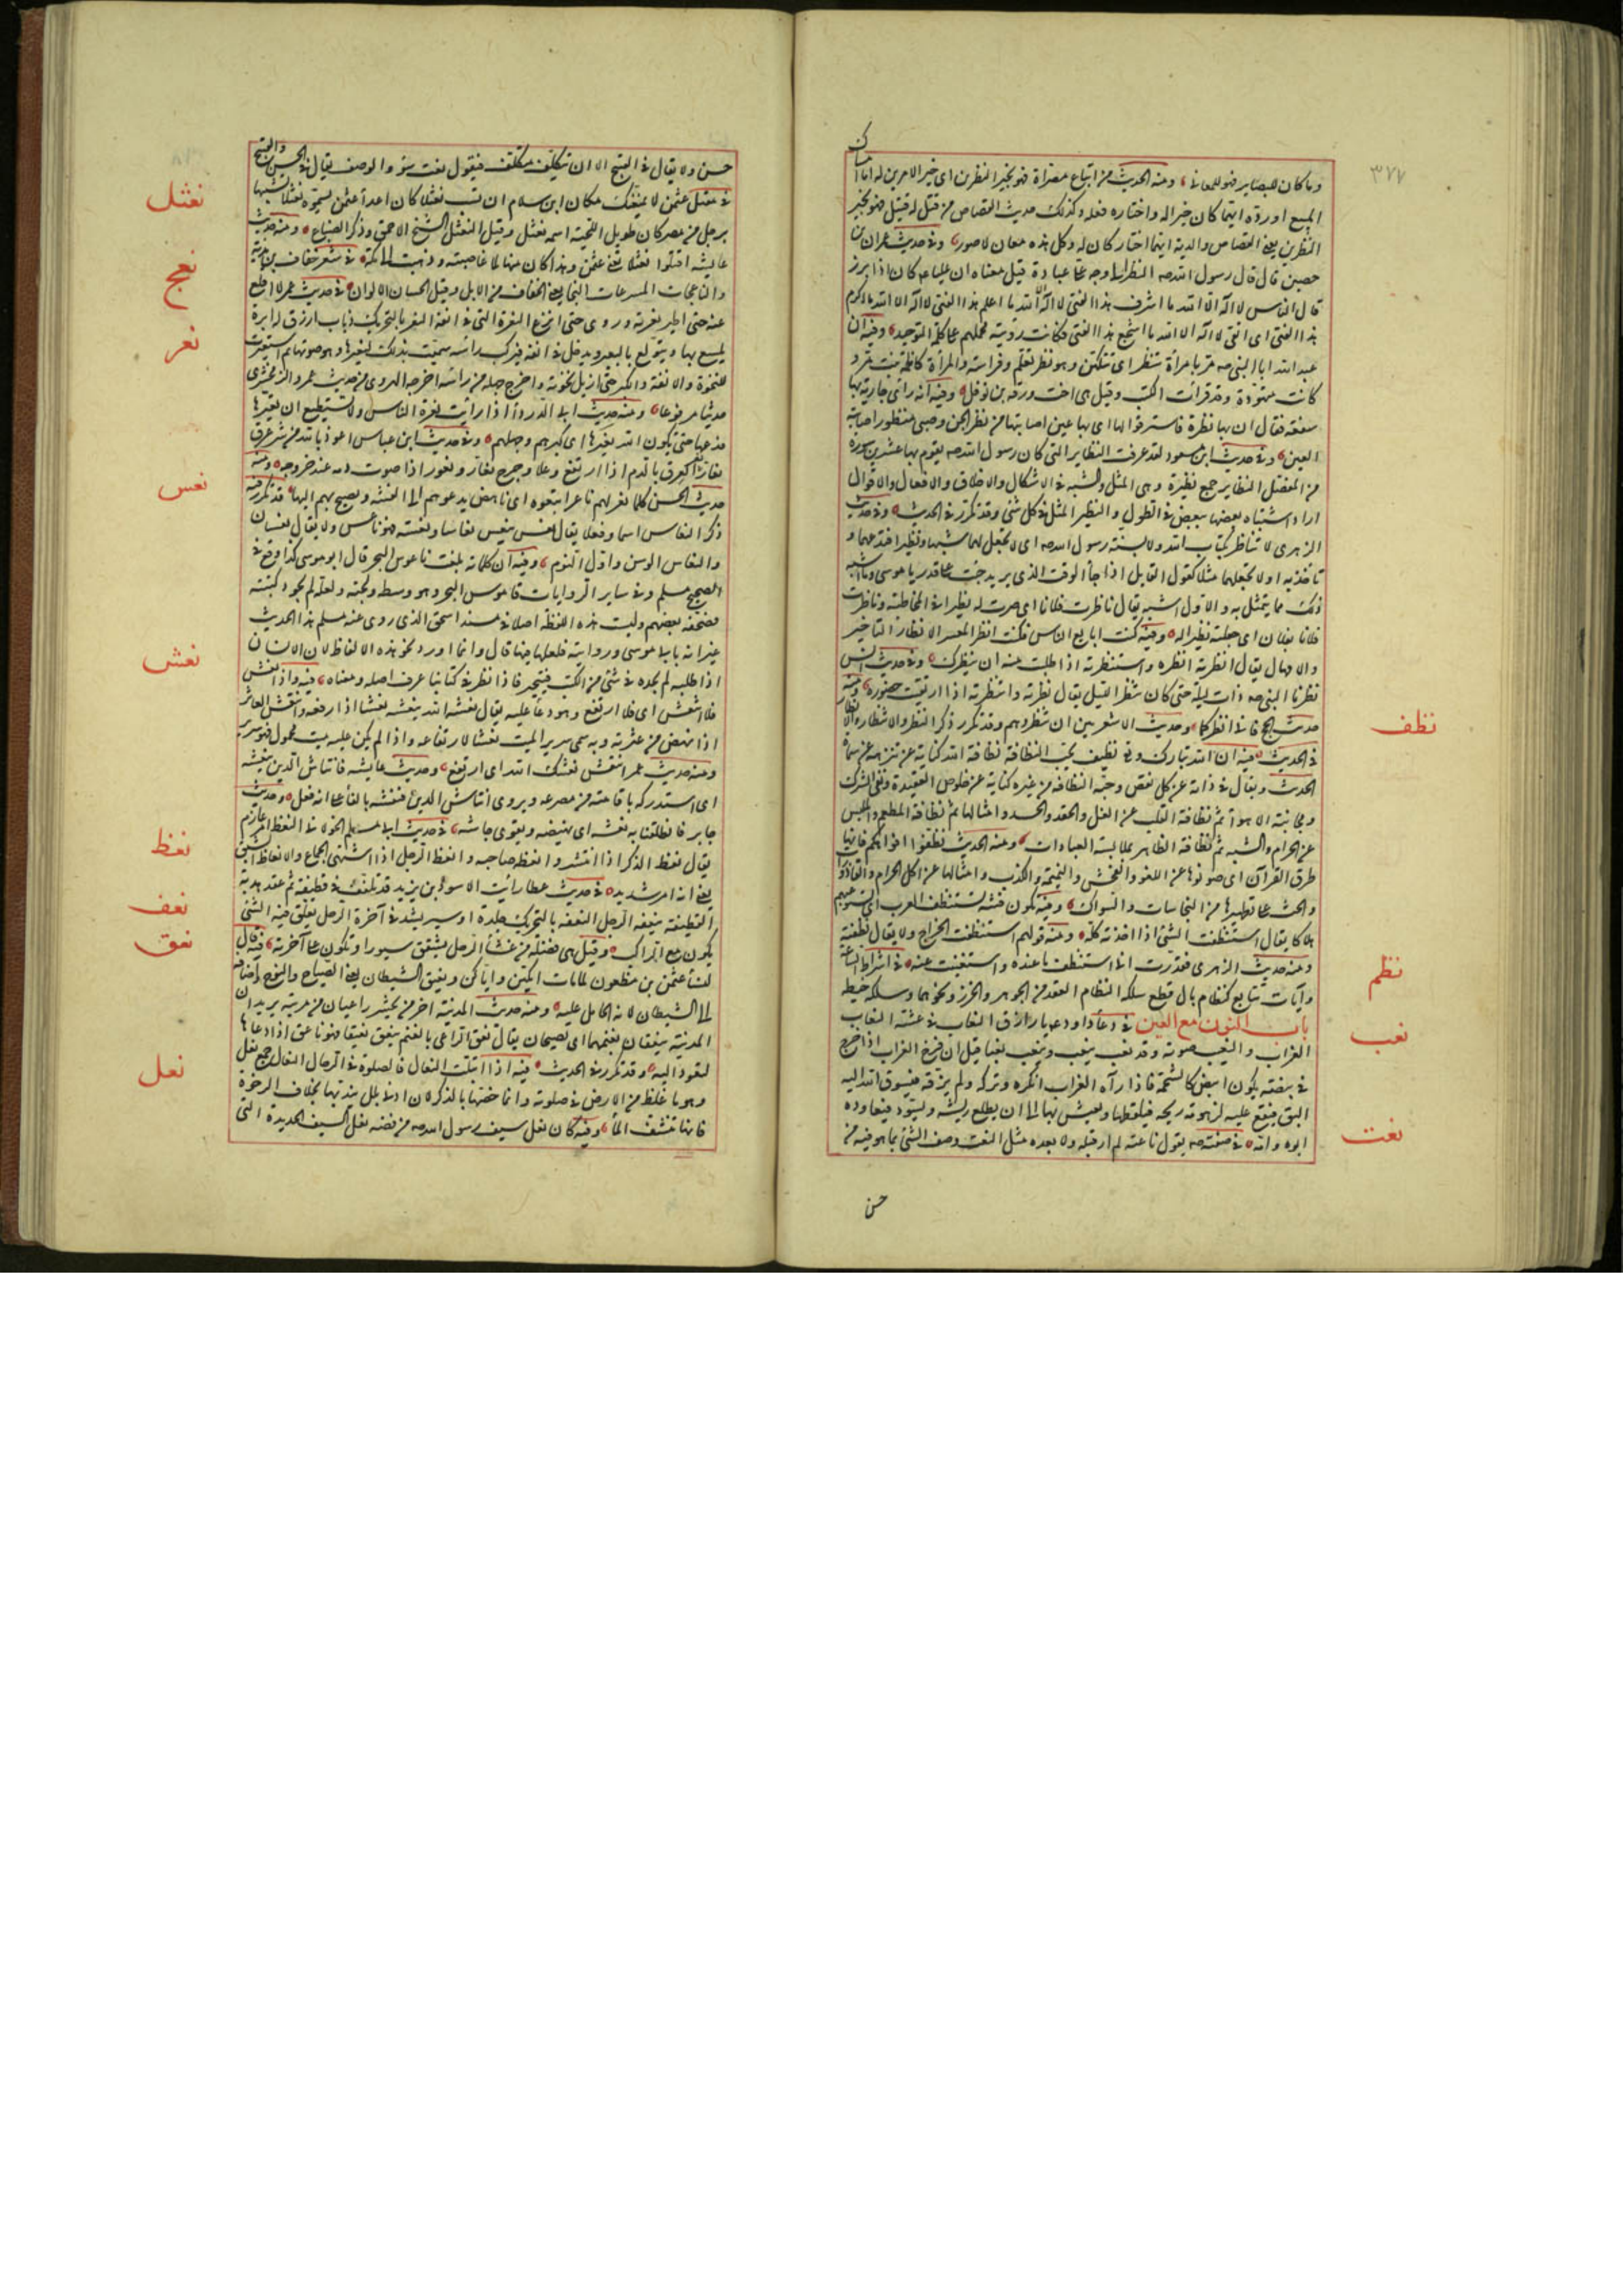 ٣٧٧
وما كان للبصاير فهو للمعاني ومنه الحديث من ابتاع مصراة فهو بخير النظرين اى خير الامرين له اما امساك
المبيع او رده ايهما كان خيرا له واختاره فعله وكذلك حديث القصاص من قتل له قتيل فهو بخير
النظرين يعنى القصاص والدية ايهما اختار كان له وكل هذه معان لا صور وفى حديث عمران بن
حصين قال قال رسول الله صه النظر الى وجه على عبادة قيل معناه ان عليا عم كان اذا برز
قال الناس لا اله الا الله ما اشرف هذا الفتى لا اله الا الله ما اعلم هذا الفتى لا اله الا الله ما اكرم
هذا الفتى اى اتقى لا اله الا الله ما اشجع هذا الفتى فكانت رؤيته تحملهم على كلمة التوحيد وفيه ان
عبد الله ابا النبى صه مر بامرأة تنظر اى تتكهن وهو نظر تعلم وفراسة والمرأة كاظمة بنت مر و
كانت متهودة وقد قرأت الكتب وقيل هى اخت ورقة بن نوفل وفيه انه رأى جارية بها
سفعة فقال ان بها نظرة فاسترقوا لها اى بها عين اصابتها من نظر الجن وصبى منظور اصابته
العين وفى حديث ابن مسعود لقد عرفت النظاير التى كان رسول الله صه يقوم بها عشرين سورة
من المفصل النظاير جمع نظيرة وهى المثل والشبه فى الاشكال والاخلاق والافعال والاقوال
اراد اشتباه بعضها ببعض فى الطول والنظير المثل فى كل شئ وقد تكرر فى الحديث وفى حديث
الزهرى لا تناظر بكتاب الله ولا بسنة رسول الله صه اى لا تجعل لهما شبها ونظيرا فتدعهما و
تاخذ به او لا تجعلهما مثلا كقول القايل اذا جاء الوقت الذى يريد جئت على قدر يا موسى وما اشبه
ذلك مما يتمثل به والاول اشبه يقال ناظرت فلانا اى صرت له نظيرا فى المخاطبة وناظرت
فلانا بفلان اى جعلته نظيرا له وفيه كنت ابايع الناس فكنت انظر المعسر الانظار التاخير
والامهال يقال انظرته انظره واستنظرته اذا طلبت منه ان ينظرك وفى حديث انس
نظرنا النبى صه ذات ليلة حتى كان شطر الليل يقال نظرته وانتظرته اذا ارتقبت حضوره ومنه
حديث الحج فانى انظركما وحديث الاشعريين ان تنظروهم وقد تكرر ذكر النظر والانتظار والانظار
نظف
فى الحديث فيه ان الله تبارك وتع نظيف يحب النظافة نظافة الله كناية عن تنزهه عن سمات
الحدث وتعال فى ذاته عن كل نقص وحبه النظافة من غيره كناية عن خلوص العقيدة ونفى الشرك
ومجانبة الاهواء ثم نظافة القلب عن الغل والحقد والحسد وامثالها ثم نظافة المطعم والملبس
عن الحرام والشبه ثم نظافة الظاهر بملابسة العبادات ومنه الحديث نظفوا افواهكم فانها
طرق القرآن اى صونوها عن اللغو والفحش والنميمة والكذب وامثالها عن اكل الحرام والقاذورات
والحث على تطهيرها من النجاسات والسواك وفيه تكون فتنة تستنظف العرب اى تستوعبهم
هلاكا يقال استنظفت الشئ اذا اخذته كله ومنه قولهم استنظفت الخراج ولا يقال نظفته
ومنه حديث الزهرى فقدرت انى استنظفت ما عنده واستغنيت عنه فى اشراط الساعة
نظم
وآيات تتابع كنظام بال قطع سلكه النظام العقد من الجوهر والخرز ونحوهما وسلكه خيطه
باب النون مع العين فى دعاء داود عم يا رازق النعاب فى عشه النعاب
نعب
الغراب والنعيب صوته وقد نعب ينعب وينعب نعبا قيل ان فرخ الغراب اذا خرج
فى بيضته يكون ابيض كالشحمة فاذا رآه الغراب انكره وتركه ولم يزقه فيسوق الله اليه
البق فيقع عليه لزهومة ريحه فيلقطها ويعيش بها الى ان يطلع ريشه ويسود فيعاوده
ابوه وامه فى صفته صه يقول ناعته لم ار قبله ولا بعده مثله النعت وصف الشئ بما هو فيه من
نعت
حسن
حسن ولا يقال فى القبيح الا ان يتكلف متكلف فيقول نعت سوء والوصف يقال فى الحسن والقبيح
نعثل
فى مقتل عثمن لا يمنعك مكان ابن سلام ان تسب نعثلا كان اعداء عثمن يسموه نعثلا تشبيها
برجل من مصر كان طويل اللحية اسمه نعثل وقيل النعثل الشيخ الاحمق وذكر الضباع ومنه حديث
عايشه اقتلوا نعثلا تعنى عثمن وهذا كان منها لما غاضبته وذهبت الى مكة فى شعر خفاف بن ندبة
نعج
والناعجات المسرعات النجا يعنى الخفاف من الابل وقيل الحسان الالوان فى حديث عمر لا اقلع
نعر
عنه حتى اطير نعرته وروى حتى انزع النعرة التى فى انفه النعر بالتحريك ذباب ازرق له ابرة
يلسع بها ويتولع بالبعير ويدخل فى انفه فيركب رأسه سميت بذلك لنعيرها وهو صوتها ثم استعيرت
للنخوة والانفة والكبر حتى ازيل نخوته واخرج جهله من رأسه اخرجه الهروى من حديث عمر والزمخشرى
حديثا مرفوعا ومنه حديث ابى الدرداء اذا رأيت نعرة الناس ولا تستطيع ان تغيرها
فدعها حتى يكون الله يغيرها اى كبرهم وجهلهم وفى حديث ابن عباس اعوذ بالله من شر عرق
نعار نعر العرق بالدم اذا ارتفع وعلا وجرح نعار ونعور اذا صوت دمه عند خروجه ومنه
حديث الحسن كلما نعر بهم ناعر اتبعوه اى ناهض يدعوهم الى الفتنة ويصيح بهم اليها قد تكرر فيه
نعس
ذكر النعاس اسما وفعلا يقال نعس ينعس نعاسا ونعسة فهو ناعس ولا يقال نعسان
والنعاس الوسن واول النوم وفيه ان كلماته بلغت ناعوس البحر قال ابو موسى كذا وقع فى
صحيح مسلم وفى ساير الروايات قاموس البحر وهو وسطه ولجته ولعله لم يجود كتبته
فصحفه بعضهم وليست هذه اللفظة اصلا فى مسند اسحق الذى روى عنه مسلم هذا الحديث
غير انه بابى موسى وروايته فلعلها فيها قال وانما اورد نحو هذه الالفاظ لان الانسان
اذا طلبه لم يجده فى شئ من الكتب فيتحير فاذا نظر فى كتابنا عرف اصله ومعناه فيه واذا تعس
نعش
فلا انتعش اى فلا ارتفع وهو دعاء عليه يقال نعشه الله ينعشه نعشا اذا رفعه وانتعش العاثر
اذا نهض من عثرته وبه سمى سرير الميت نعشا لارتفاعه واذا لم يكن عليه ميت محمول فهو سرير
ومنه حديث عمر انتعش نعشك الله اى ارتفع وحديث عايشه فانتاش الدين بنعشه
اى استدركه باقامته من مصرعه ويروى انتاش الدين فنعشه بالفاء على انه فعل وحديث
جابر فانطلقنا به ننعشه اى ننهضه ونقوى جاشه فى حديث ابى مسلم الخولانى النعظ امر عارم
نعظ
يقال نعظ الذكر اذا انتشر وانعظه صاحبه وانعظ الرجل اذا اشتهى الجماع والانعاظ الشبق
يعنى انه امر شديد فى حديث عطا رأيت الاسود بن يزيد قد تلفف فى قطيفة ثم عقد هدبة
نعف
القطيفة بنعفة الرحل النعفة بالتحريك جلدة او سير يشد فى آخرة الرحل يعلق فيه الشئ
يكون مع الراكب وقيل هى فضلة من غشاء الرحل يشقق سيورا وتكون على آخرته فيه قال
نعق
لنساء عثمن بن مظعون لما مات ابكين واياكن ونعيق الشيطان يعنى الصياح والنوح واضافه
الى الشيطان لانه الحامل عليه ومنه حديث المدينة آخر من يحشر راعيان من مزينة يريدان
المدينة ينعقان بغنمهما اى يصيحان يقال نعق الراعى بالغنم ينعق نعيقا فهو ناعق اذا دعاها
لتعود اليه وقد تكرر فى الحديث فيه اذا ابتلت النعال فالصلوة فى الرحال النعال جمع نعل
نعل
وهو ما غلظ من الارض فى صلابة وانما خصها بالذكر لان ادنى بلل ينديها بخلاف الرخوة
فانها تنشف الماء وفيه كان نعل سيف رسول الله صه من فضة نعل السيف الحديدة التى